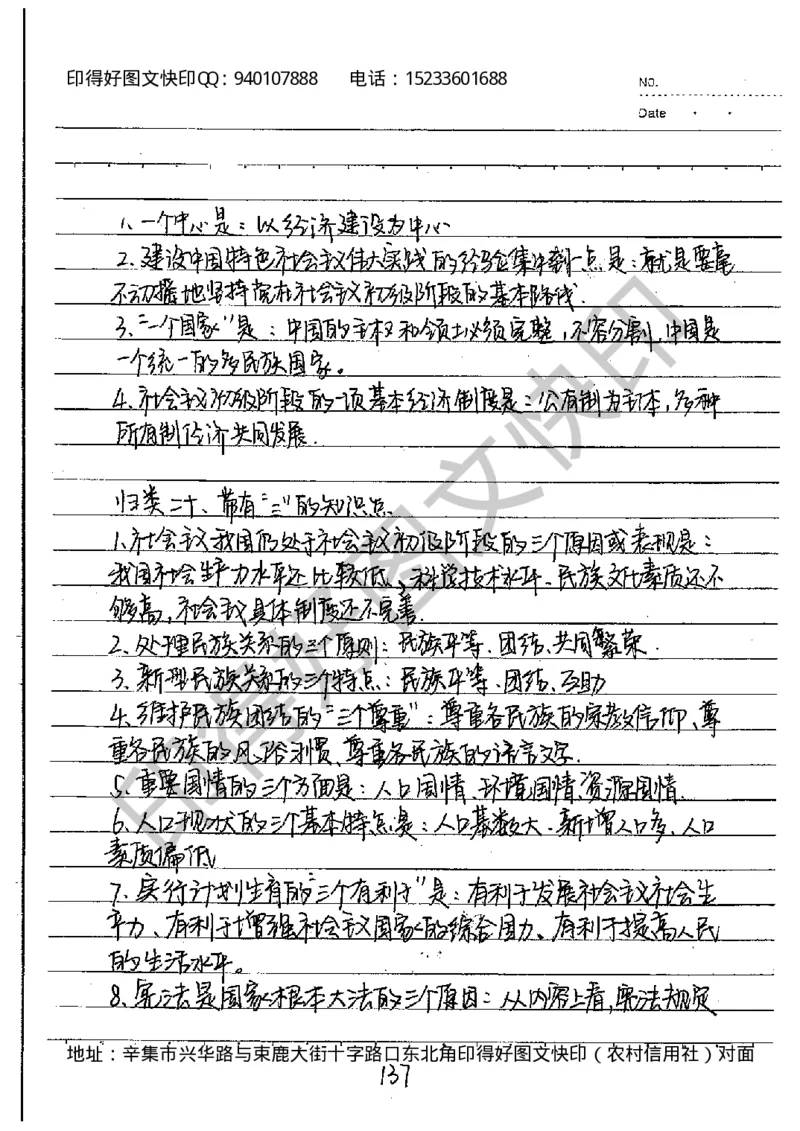 印得好图文快印QQ：940107888 电话：15233601688
NO.
Date
1、一个中心是：以经济建设为中心
2、建设中国特色社会主义伟大实践的经验集中到一点是：就是要毫
不动摇地坚持党在社会主义初级阶段的基本路线.
3、“一个国家”是：中国的主权和领土必须完整，不容分割，中国是
一个统一的多民族国家。
4、社会主义初级阶段的一项基本经济制度是：公有制为主体，多种
所有制经济共同发展.
归类二十、带有“三”的知识点
1、社会主义我国仍处于社会主义初级阶段的三个原因或表现是：
我国社会生产力水平还比较低、科学技术水平、民族文化素质还不
够高，社会主义具体制度还不完善.
2、处理民族关系的三个原则：民族平等、团结、共同繁荣.
3、新型民族关系的三个特点：民族平等、团结、互助
4、维护民族团结的“三个尊重”：尊重各民族的宗教信仰、尊
重各民族的风俗习惯、尊重各民族的语言文字.
5、重要国情的三个方面是：人口国情、环境国情、资源国情.
6、人口现状的三个基本特点是：人口基数大、新增人口多、人口
素质偏低
7、实行计划生育的“三个有利于”是：有利于发展社会主义社会生
产力、有利于增强社会主义国家的综合国力、有利于提高人民
的生活水平。
8、宪法是国家根本大法的三个原因：从内容上看，宪法规定
印得好图文快印
地址：辛集市兴华路与束鹿大街十字路口东北角印得好图文快印（农村信用社）对面
137